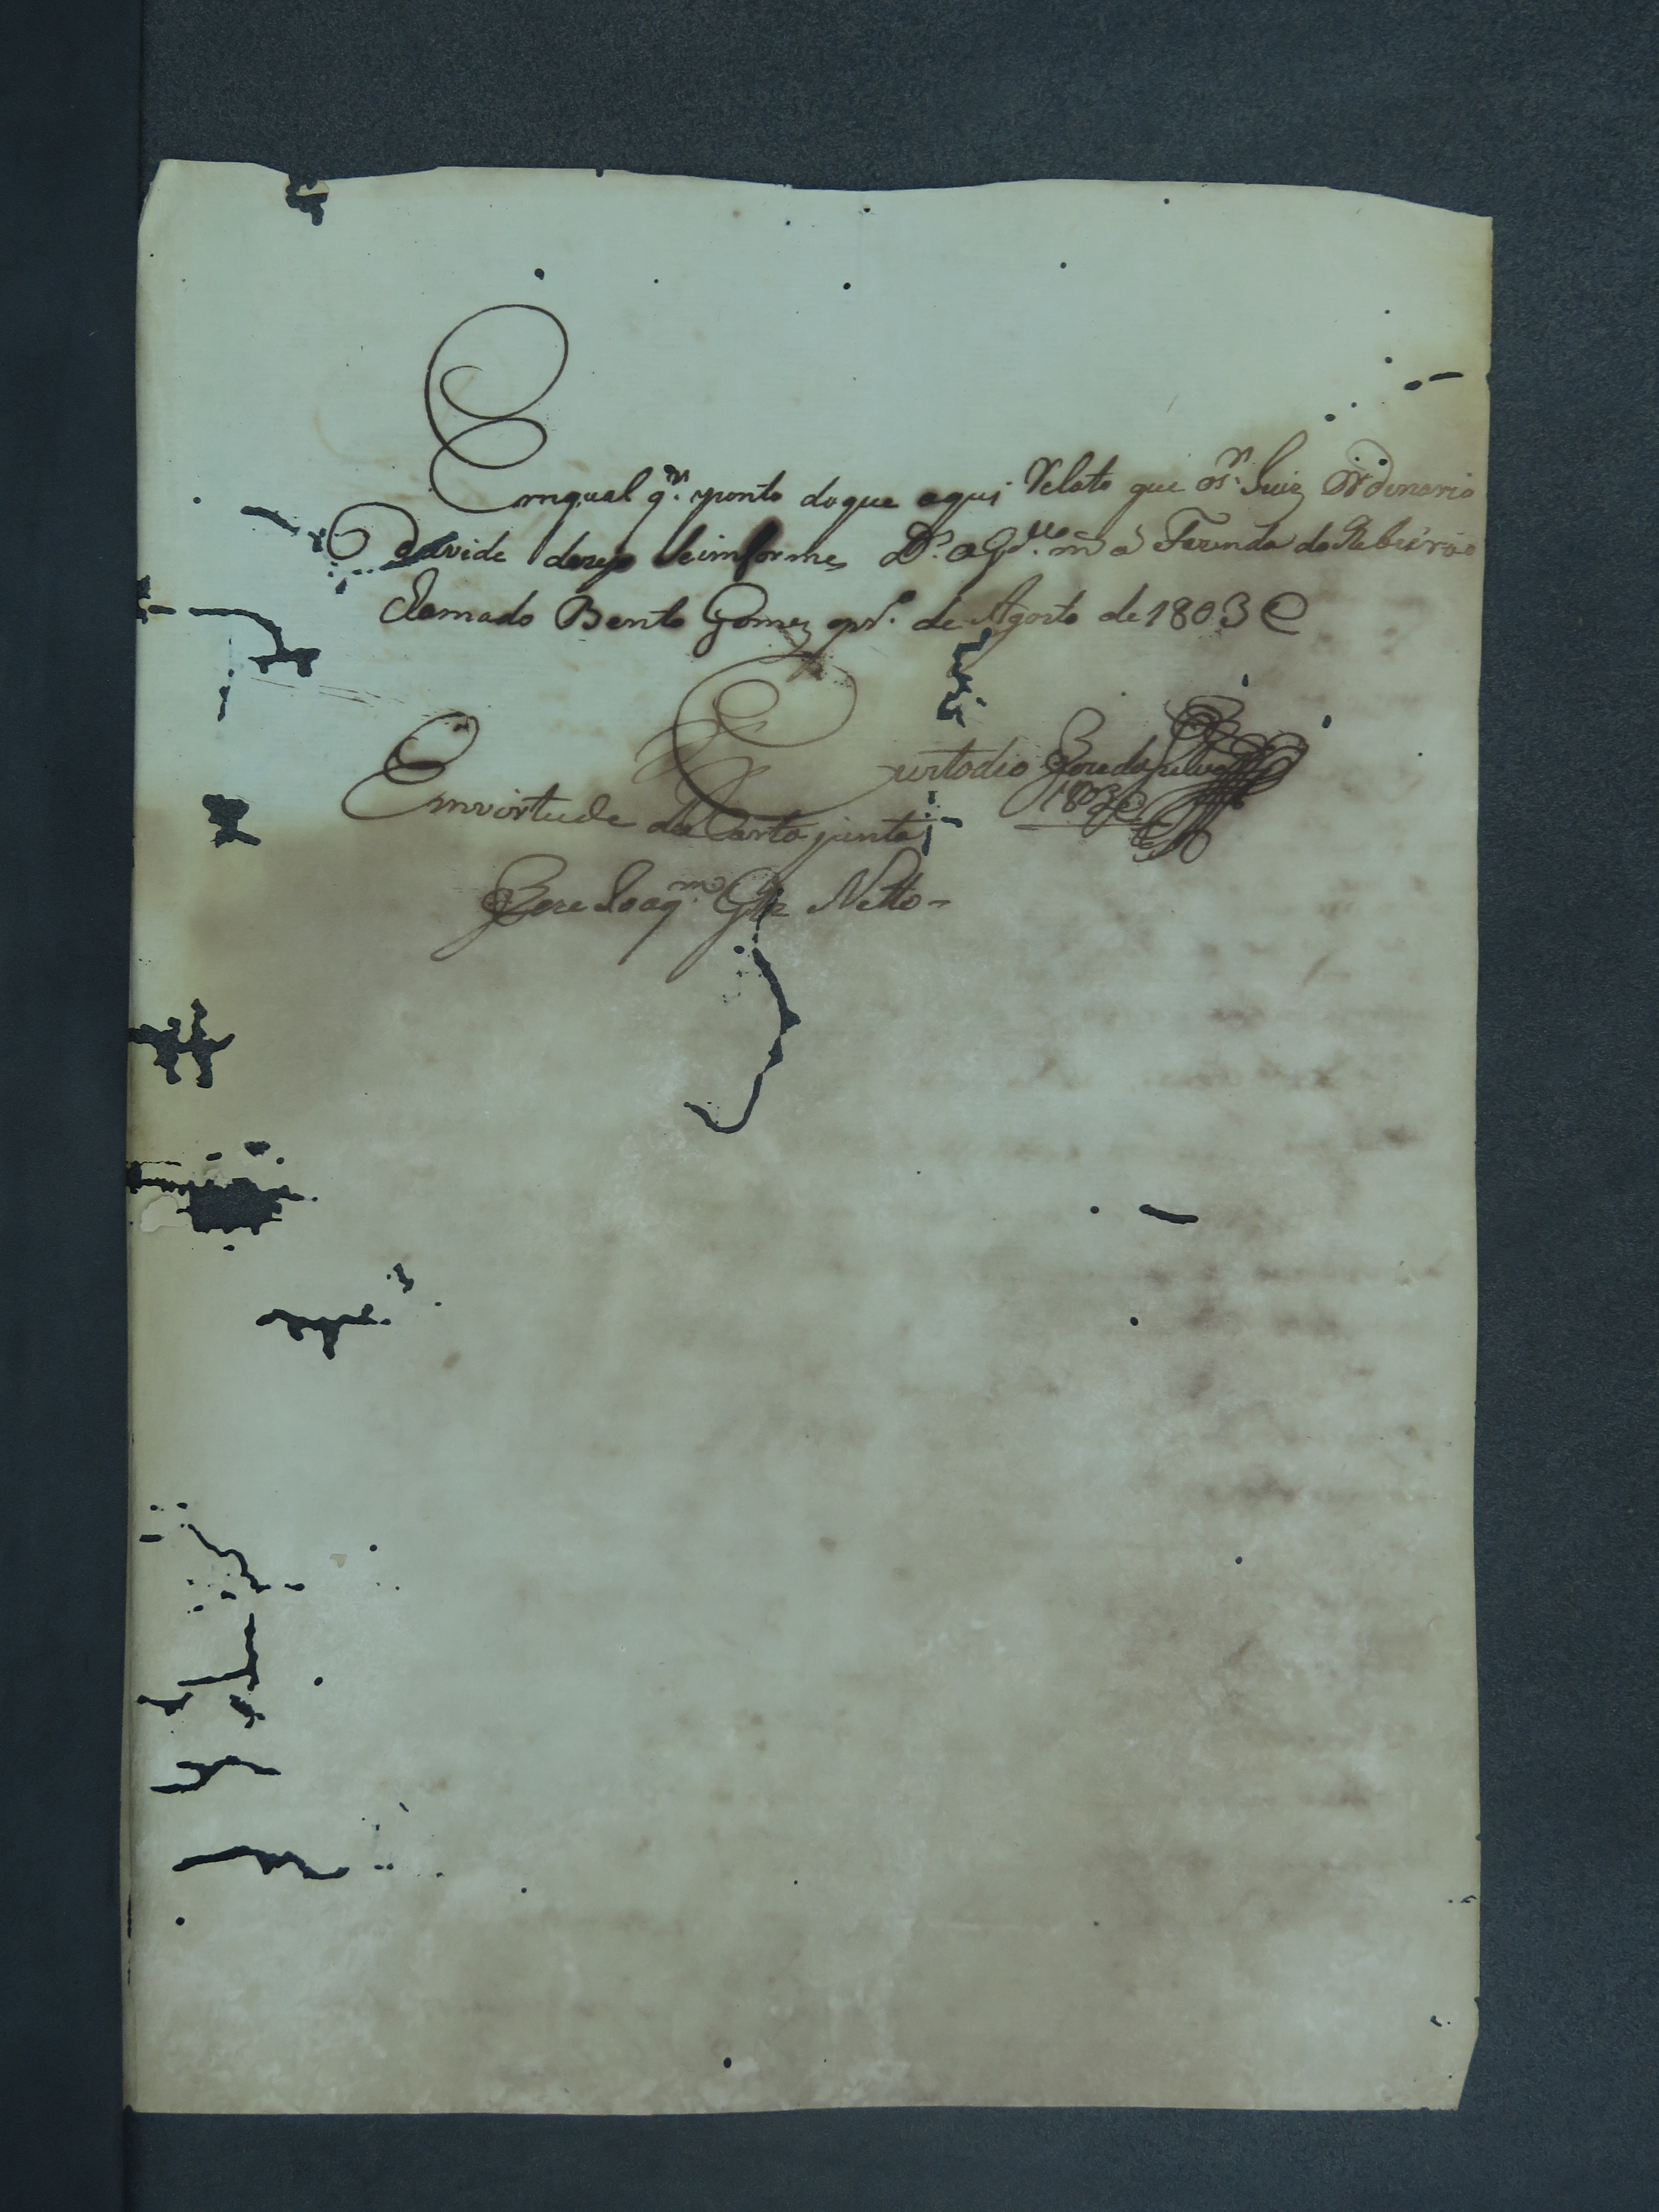 Emqual qr. ponto doque aqui Relato que o Sr. Juiz Ordinario
Duvide dezejo seimforme Ds. a Gde. m a Fazenda do Ribeirão
clamado Bento Gomez pro. de Agosto de 1803
Custodio Joze da Silva
1803
Emvirtude da Carta junta
Joze Joaqm. Glz Netto-